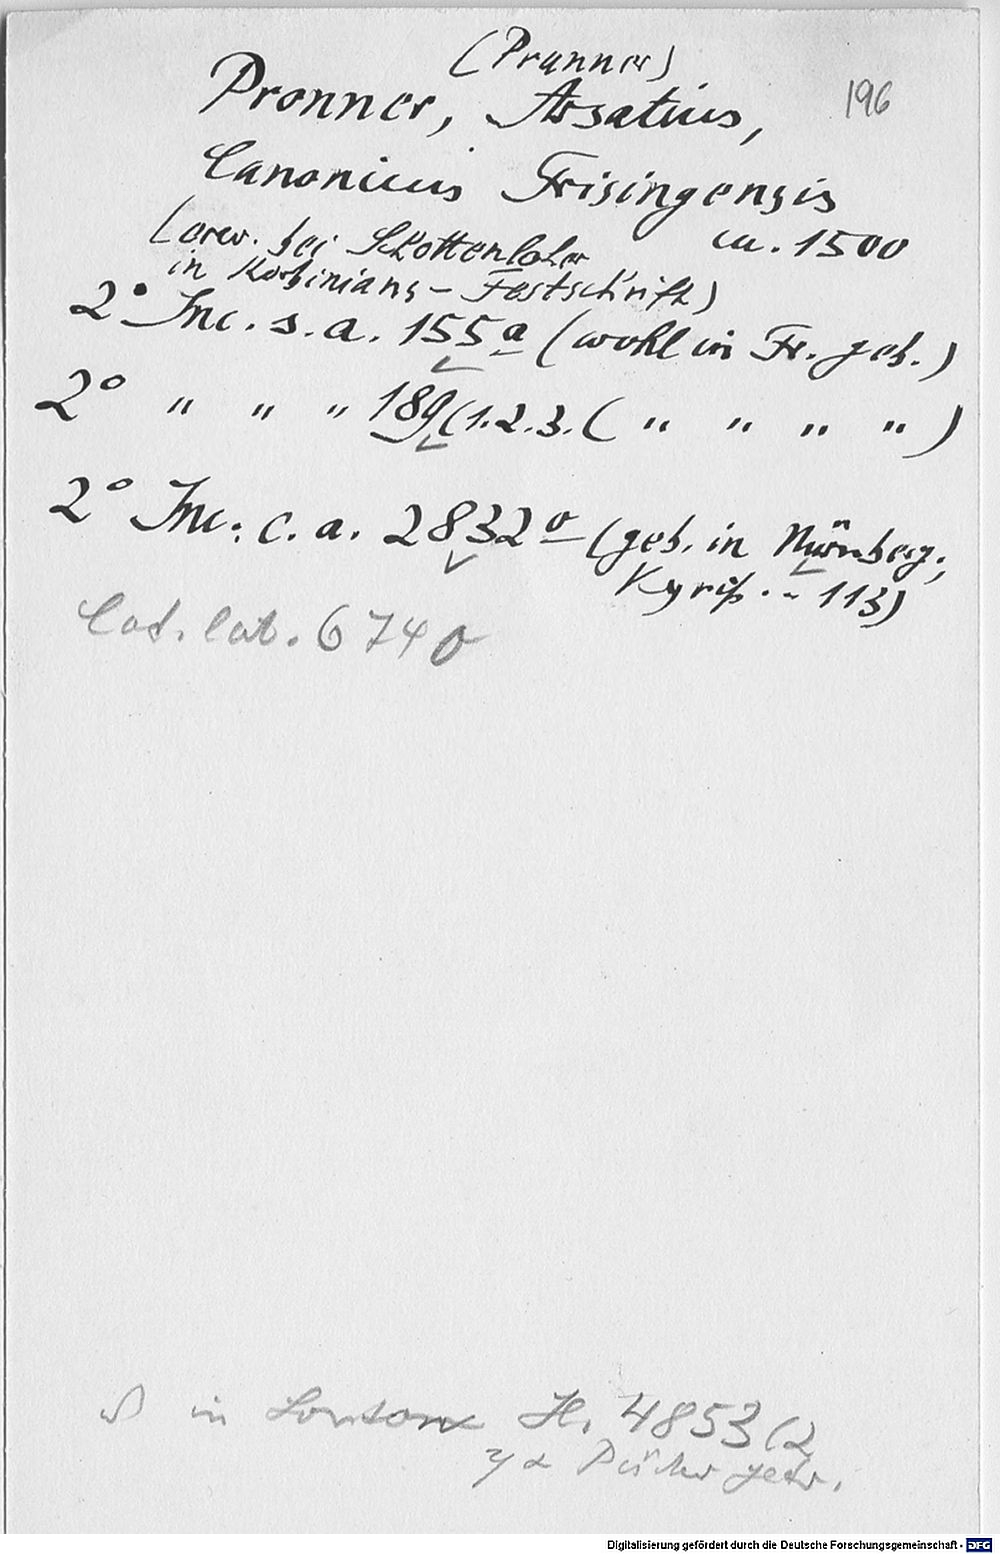 (Prunner)
Pronner, Arsatius, 196
Canonicus Frisingensis
ca. 1500
(erw. bei Schottenloher
in Korbinians-Festschrift)
2° Inc. s. a. 155 a (wohl in Fr. geb.)
2° " " " 189(1.2.3. ( " " " " )
2° Inc. c. a. 2832 a (geb. in Nürnberg,
Kyriß. - 113)
Cod. lat. 6740
in London H. 4853(2
Bücher
Digitalisierung gefördert durch die Deutsche Forschungsgemeinschaft - DFG